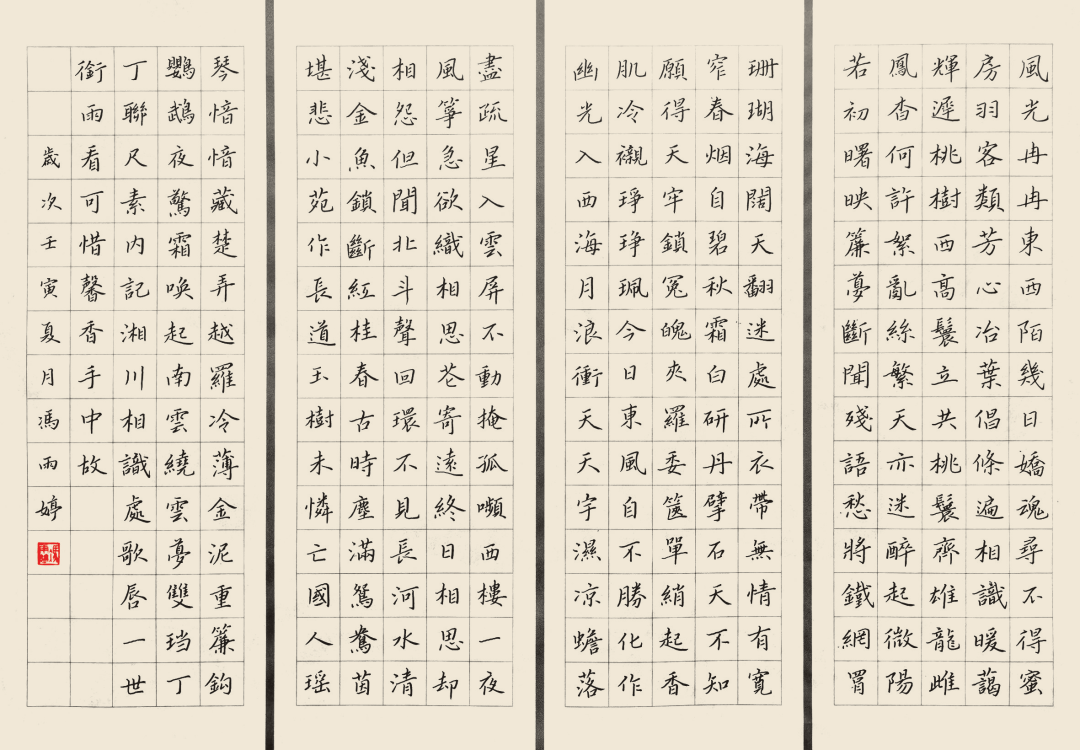 風光冉冉東西陌幾日嬌魂尋不得蜜
房羽客類芳心冶葉倡條遍相識暖藹
輝遲桃樹西高鬟立共桃鬟齊雄龍雌
鳳杳何許絮亂絲繁天亦迷醉起微陽
若初曙映簾夢斷聞殘語愁將鐵網罥
珊瑚海闊天翻迷處所衣帶無情有寬
窄春烟自碧秋霜白研丹擘石天不知
願得天牢鎖冤魄夾羅委篋單綃起香
肌冷襯琤琤珮今日東風自不勝化作
幽光入西海月浪衝天天宇濕凉蟾落
盡疏星入雲屏不動掩孤嚬西樓一夜
風箏急欲織相思花寄遠終日相思却
相怨但聞北斗聲回環不見長河水清
淺金魚鎖斷紅桂春古時塵滿鴛鴦茵
堪悲小苑作長道玉樹未憐亡國人瑶
琴愔愔藏楚弄越羅冷薄金泥重簾鈎
鸚鵡夜驚霜喚起南雲繞雲夢雙珰丁
丁聯尺素内記湘川相識處歌唇一世
銜雨看可惜馨香手中故
歲次壬寅夏月馮雨婷